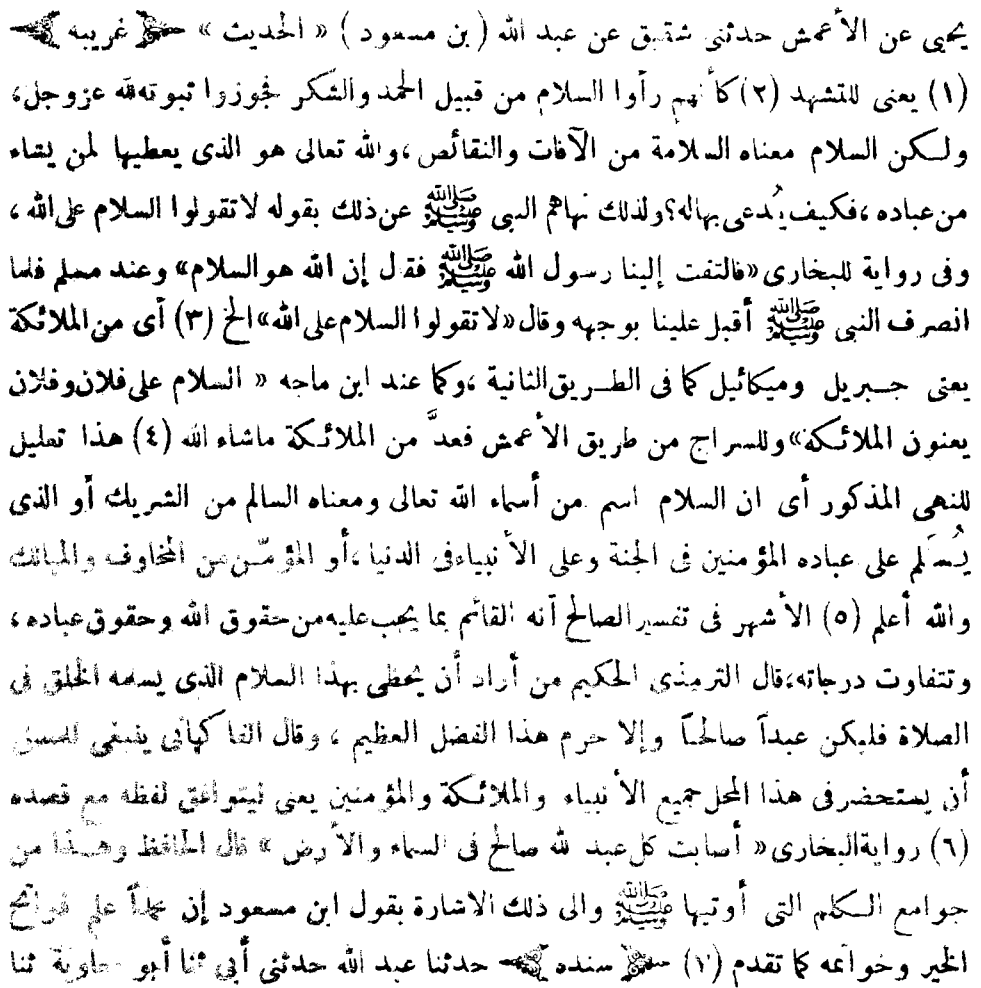 يحيى عن الأعمش حدثنى شقيق عن عبد الله (بن مسعود) « الحديث » غريبه
(١) يعنى للتشهد (٢) كأنهم رأوا السلام من قبيل الحمد والشكر فجوزوا ثبوته لله عزوجل،
ولكن السلام معناه السلامة من الآفات والنقائص، والله تعالى هو الذى يعطيها لمن يشاء
من عباده، فكيف يُدعى بها له؟ ولذلك نهاهم النبى ﷺ عن ذلك بقوله لا تقولوا السلام على الله،
وفى رواية للبخارى «فالتفت إلينا رسول الله ﷺ فقال إن الله هو السلام» وعند مسلم فلما
انصرف النبى ﷺ أقبل علينا بوجهه وقال «لا تقولوا السلام على الله» الخ (٣) أى من الملائكة
يعنى جبريل وميكائيل كما فى الطريق الثانية، وكما عند ابن ماجه « السلام على فلان وفلان
يعنون الملائكة» وللسراج من طريق الأعمش فعدَّ من الملائكة ماشاء الله (٤) هذا تعليل
للنهى المذكور أى ان السلام اسم من أسماء الله تعالى ومعناه السالم من الشريك أو الذى
يُسَلم على عباده المؤمنين فى الجنة وعلى الأنبياء فى الدنيا، أو المؤمّن من المخاوف والمهالك
والله أعلم (٥) الأشهر فى تفسير الصالح أنه القائم بما يجب عليه من حقوق الله وحقوق عباده،
وتتفاوت درجاته، قال الترمذى الحكيم من أراد أن يحظى بهذا السلام الذى يسلمه الخلق فى
الصلاة فليكن عبداً صالحاً وإلا حرم هذا الفضل العظيم، وقال الفاكهانى ينبغى للمصلى
أن يستحضر فى هذا المحل جميع الأنبياء والملائكة والمؤمنين يعنى ليتوافق لفظه مع قصده
(٦) رواية البخارى « أصابت كل عبد لله صالح فى السماء والأرض » قال الحافظ وهذا من
جوامع الكلم التى أوتيها ﷺ والى ذلك الاشارة بقول ابن مسعود إن محمداً علم فواتح
الخير وخواتمه كما تقدم (٧) سنده حدثنا عبد الله حدثنى أبى ثنا أبو معاوية ثنا